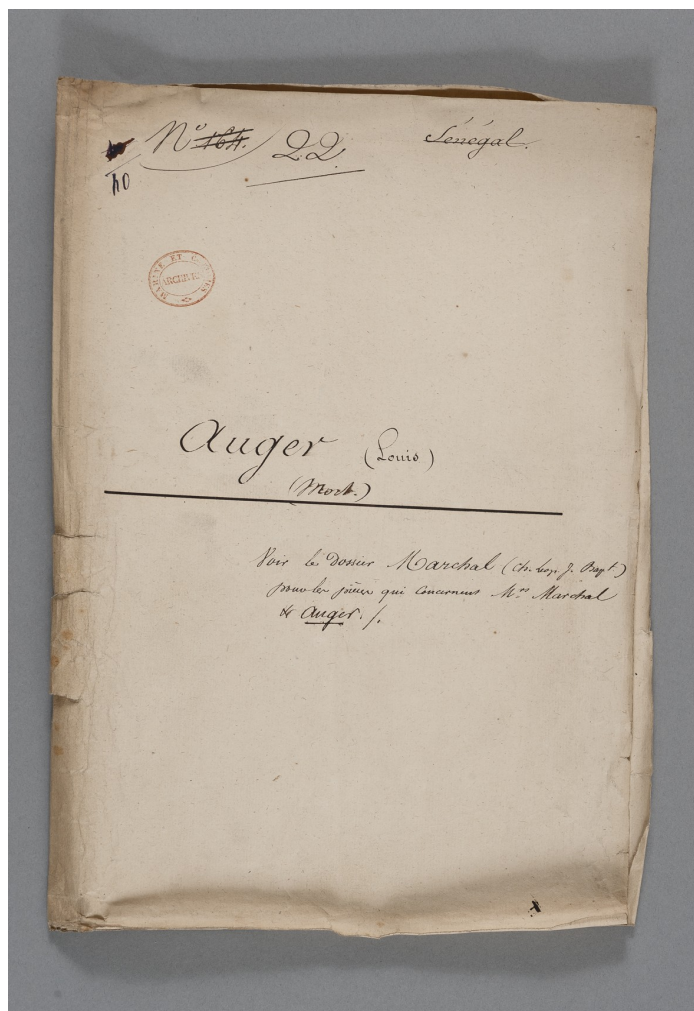 Nº 164. 22 Sénégal.
40
MARINE ET COLONIES
ARCHIVES
Auger (Louis)
(Mort.)
Voir le Dossier Marchal (Ch. Léop. J. Bapt)
pour les pièces qui concernent Mrs Marchal
& Auger. /.